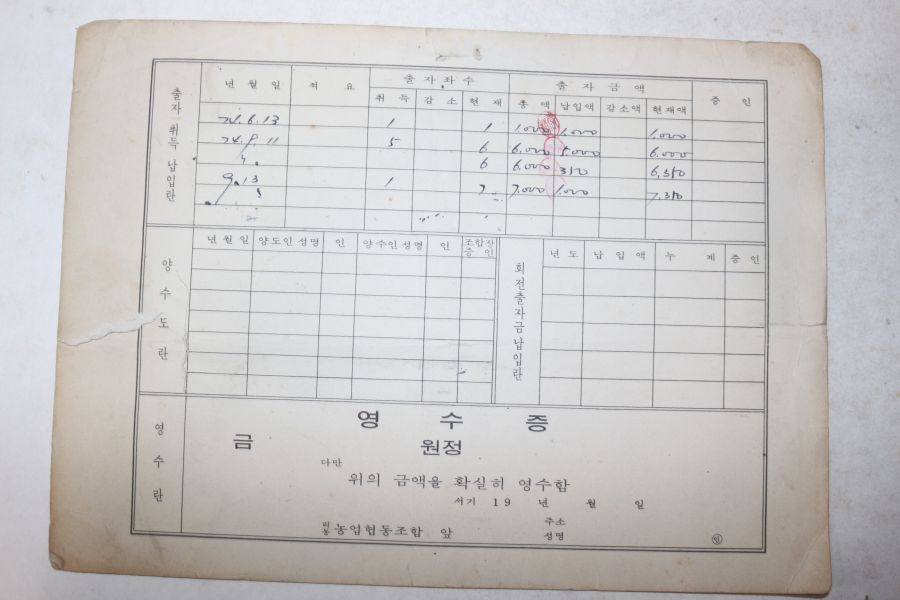 출자취득납입란
년 월 일 적 요 출자좌수 출자금액 증 인
취 득 감 소 현 재 총 액 납입액 감소액 현재액
74.6.13 1 1 1,000 1,000 1,000
74.9.11 5 6 6,000 5,000 6,000
〃 6 6,000 350 6,350
9.13 1 7 7,000 1,000 7,350
양 수 도 란
년월일 양도인성명 인 양수인성명 인 조합장증인
회전출자금납입란
년 도 납 입 액 누 계 증 인
영 수 란
영 수 증
금 원정
다만
위의 금액을 확실히 영수함
서기 19 년 월 일
리동 농업협동조합 앞
주소
성명 ㊞